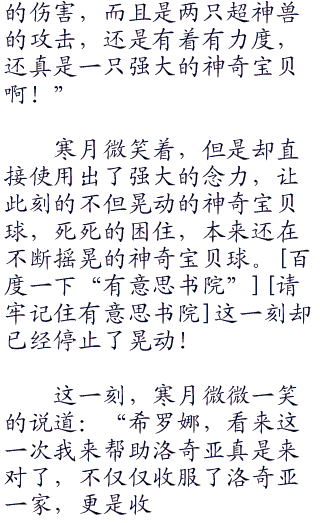 的伤害，而且是两只超神兽
的攻击，还是有着有力度，
还真是一只强大的神奇宝贝
啊！”
寒月微笑着，但是却直
接使用出了强大的念力，让
此刻的不但晃动的神奇宝贝
球，死死的困住，本来还在
不断摇晃的神奇宝贝球。[百
度一下“有意思书院”][请
牢记住有意思书院]这一刻却
已经停止了晃动！
这一刻，寒月微微一笑
的说道：“希罗娜，看来这
一次我来帮助洛奇亚真是来
对了，不仅仅收服了洛奇亚
一家，更是收